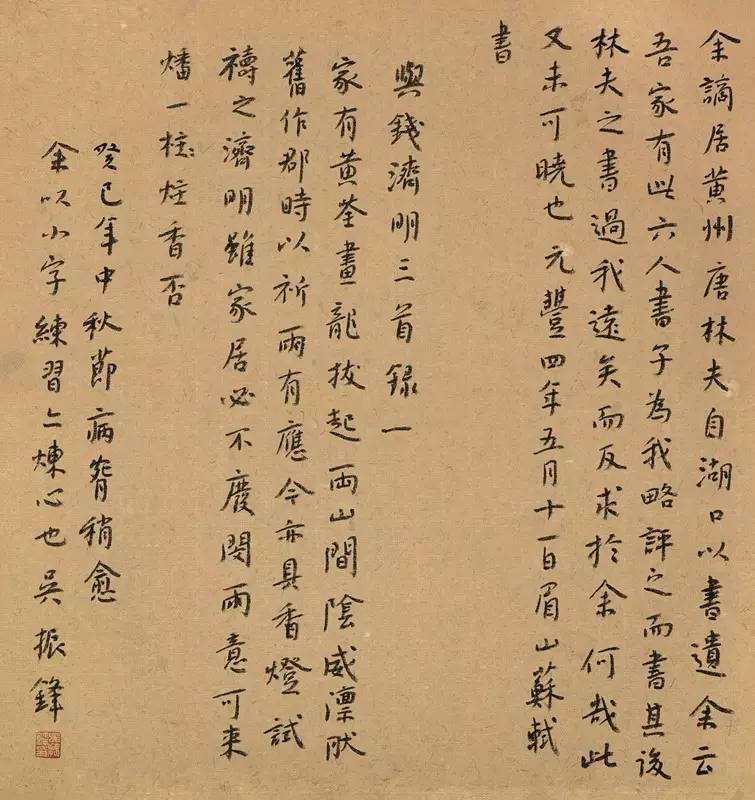 余謫居黄州唐林夫自湖口以書遺余云
吾家有此六人書子為我略評之而書其後
林夫之書過我遠矣而反求於余何哉此
又未可曉也元豐四年五月十一日眉山蘇軾
書
與錢濟明三首録一
家有黄荃畫龍拔起两山間陰威凛然
舊作郡時以祈雨有應今亦具香燈試
禱之濟明雖家居必不廢閔雨意可来
燔一柱炷香否
癸巳年中秋節病脊稍愈
余以小字練習亦煉心也吴振鋒